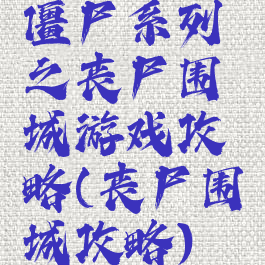 僵尸系列
之丧尸围
城游戏攻
略(丧尸围
城攻略)